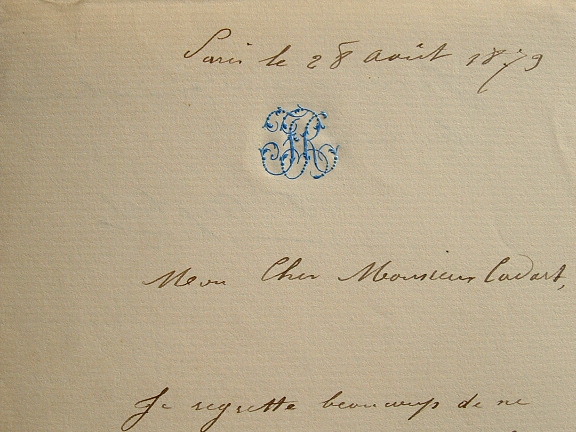 Paris le 28 août 1879
JR
Mon Cher Monsieur Cadart,
Je regrette beaucoup de ne